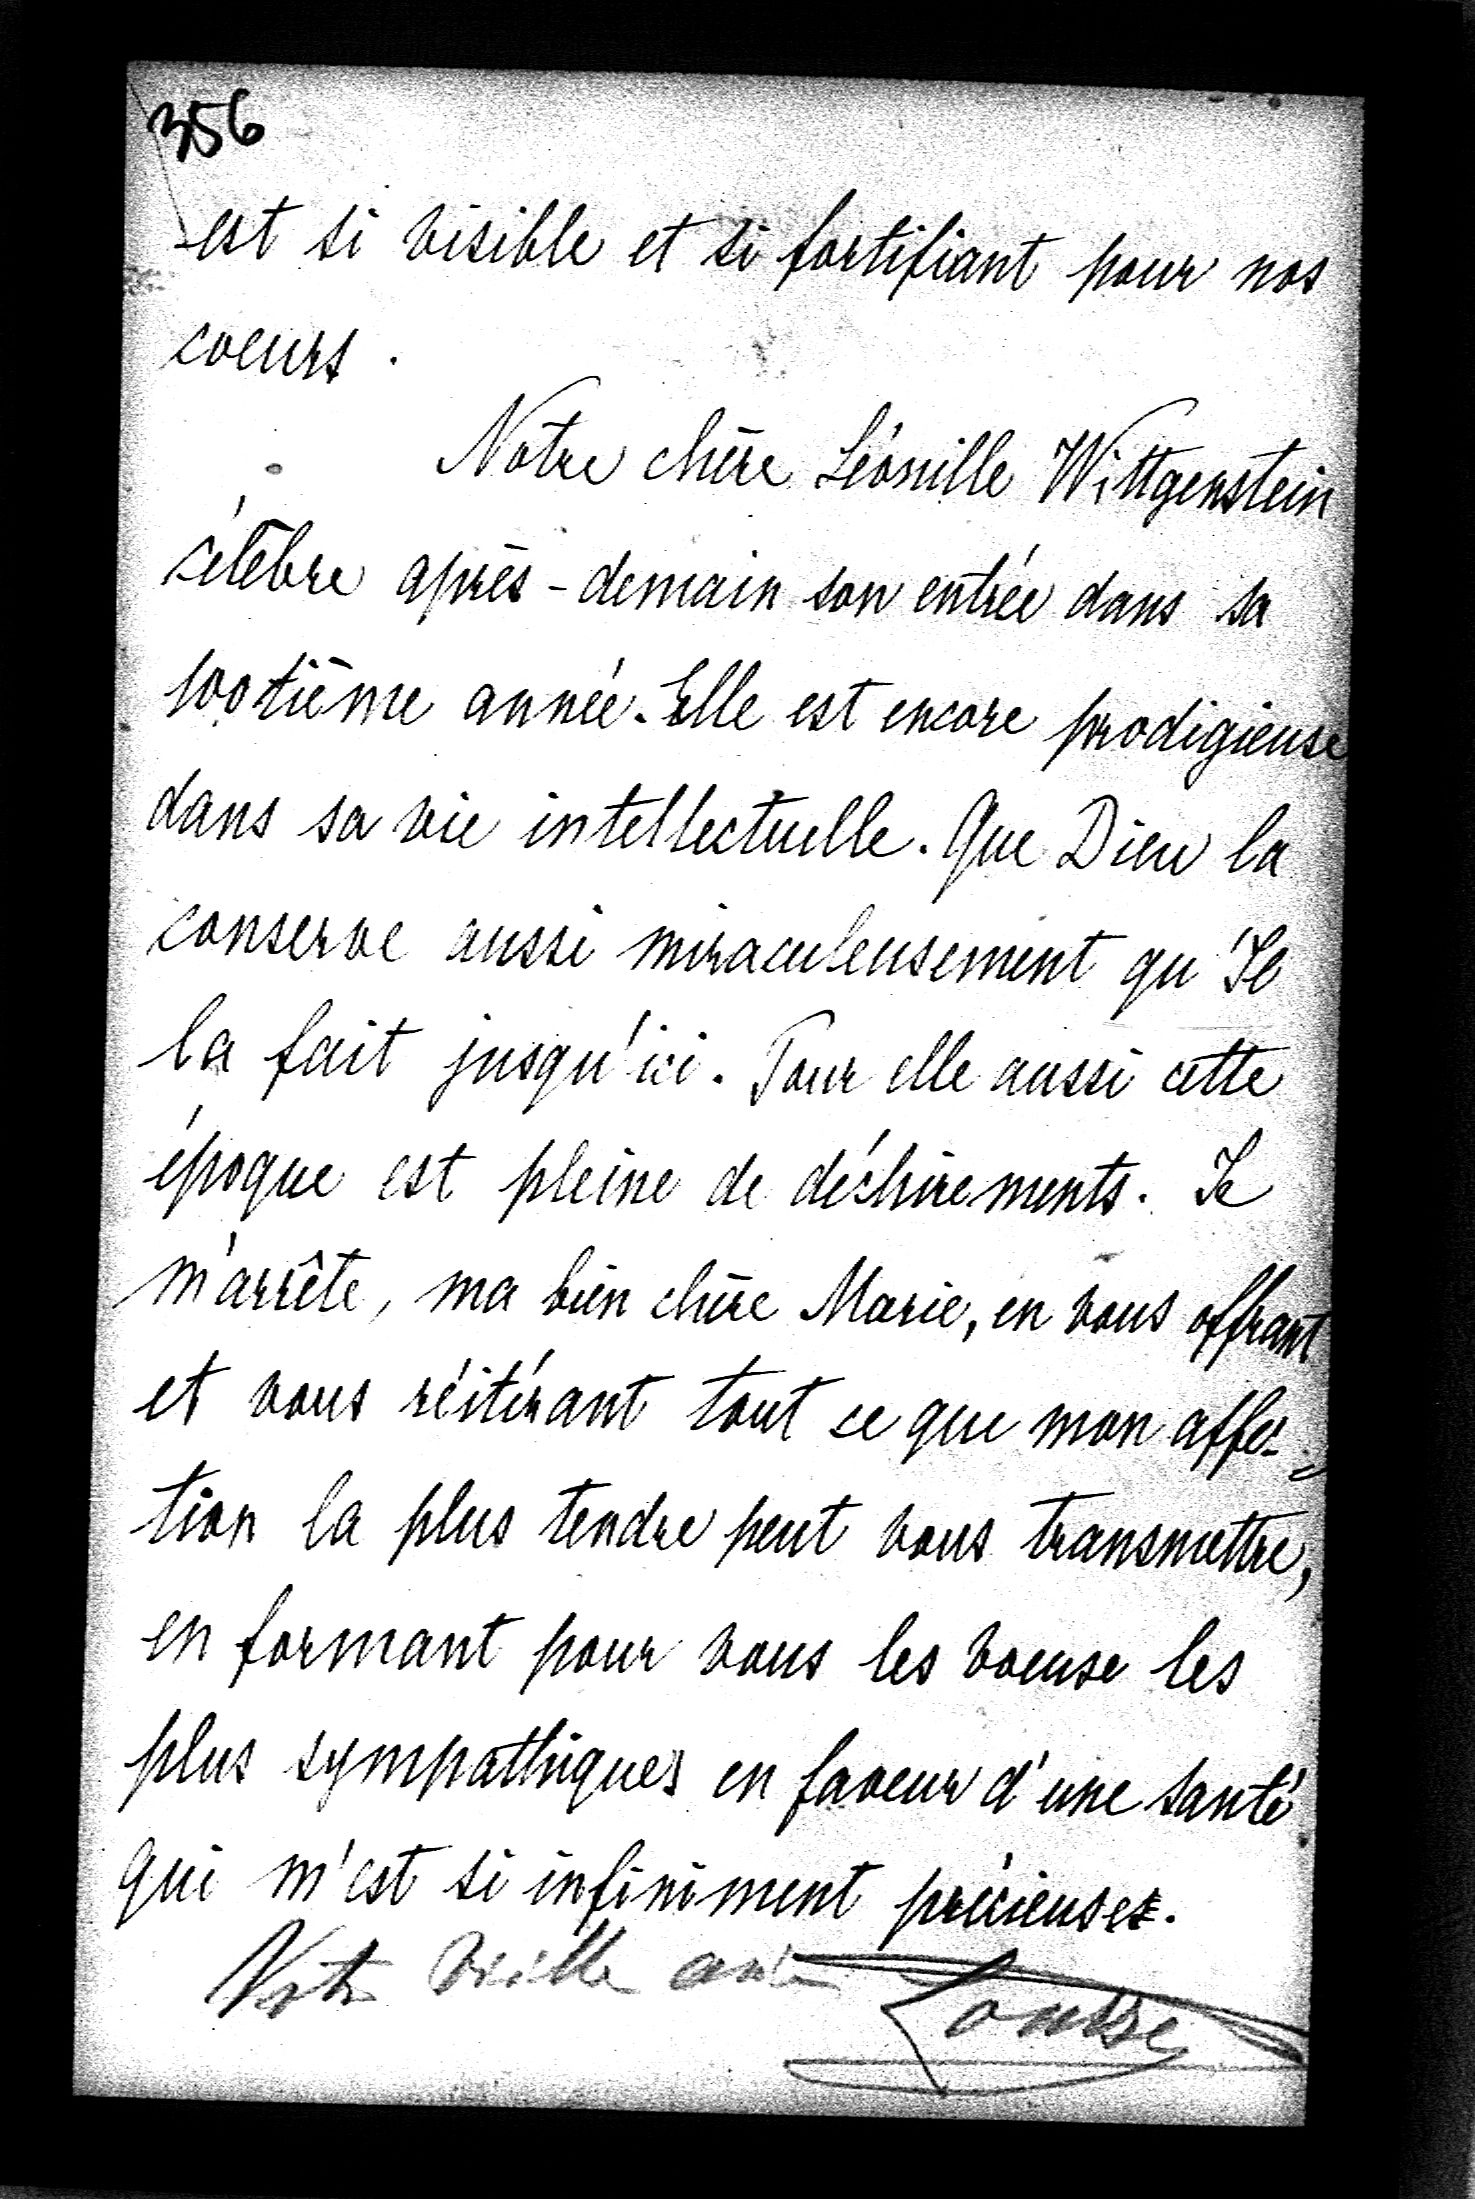 356
est si visible et si fortifiant pour nos
coeurs.
Notre chère Léonille Wittgenstein
célèbre après-demain son entrée dans sa
100tième année. Elle est encore prodigieuse
dans sa vie intellectuelle. Que Dieu la
conserve aussi miraculeusement qu'Il
la fait jusqu'ici. Pour elle aussi cette
époque est pleine de déchirements. Je
m'arrête, ma bien chère Marie, en vous offrant
et vous réitérant tout ce que mon affec-
tion la plus tendre peut vous transmettre,
en formant pour vous les voeuse les
plus sympathiques en faveur d'une santé
qui m'est si infiniment précieuse.
Votre vieille amie Louise